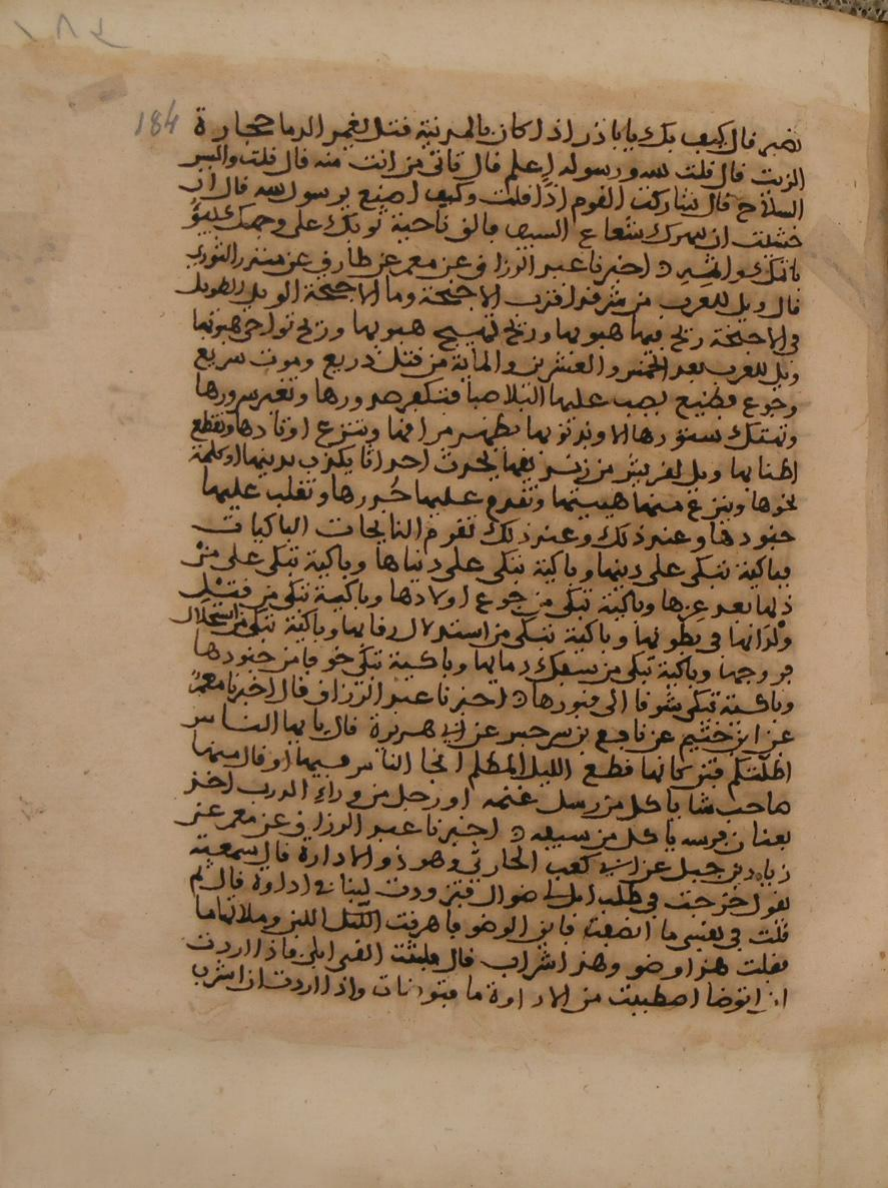 184
تصبر قال كيف بك يا با ذر اذا كان بالمدينة قتل تغمر الدما حجارة
الزيت قال قلت لله ورسوله اعلم قال قاتى من انت منه قال قلت والبس
السلاح قال شاركت القوم اذا قلت وكيف اصنع يرسول الله قال ان
خشيت ان يبهرك شعاع السيف فالق ناحية ثوبك على وجهك ليبؤ
باثمك واثمه اخبرنا عبد الرزاق عن معمر عن طارق عن منذر الثوري
قال ويل للعرب من شر قد اقترب الاجنحة وما الاجنحة الويل الطويل
في الاجنحة ريح فيها هبوبها وريح تهيج هبوبها وريح تواخى هبوبها
ويل للعرب بعد الخمس والعشرين والماية من قتل ذريع وموت سريع
وجوع فظيع يصب عليها البلا صبا فتكفر صدورها وتغير سرورها
وتهتك ستورها الا وبذنوبها يظهر مراقها وينزع اوتادها وتقطع
اطنابها ويل لقريش من زنديقها يحدث احداثا يكذب بدينها او كلمة
نحوها وينزع منها هيبتها وتهدم عليها خدورها وتغلب عليها
جنودها وعند ذلك وعند ذلك تقوم النايحات الباكيات
فباكية تبكى على دينها وباكية تبكى على دنياها وباكية تبكى على من
ذلها بعد عزها وباكية تبكى من جوع اولادها وباكية تبكى من قتل
ولدانها في بطونها وباكية تبكى من استذلال رقابها وباكية تبكى من استحلال
فروجها وباكية تبكى من سفك دمايها وباكية تبكى خوفا من جنودها
وباكية تبكى شوقا الى قبورها اخبرنا عبد الرزاق قال اخبرنا معمر
عن ابن خثيم عن نافع بن سرجس عن ابي هريرة قال يا يها الناس
اظلتكم فتن كانها قطع الليل المظلم انجا الناس فيها او قال منها
صاحب شا ياكل من رسل غنمه او رجل من وراء الدرب اخذ
بعنان فرسه ياكل من سيفه اخبرنا عبد الرزاق عن معمر عن
زياد بن جبل عن ابي كعب الحارثي وهو ذو الاداوة قال سمعته
يقول خرجت في طلب ابل لي ضوال فتزودت لبنا في اداوة قال ثم
قلت في نفسي ما انصفت فاين الوضو فاهرقت اللبن وملاتها ما
فقلت هذا وضو وهذا شراب قال فلبثت ابغي ابلي فاذا اردت
ان اتوضا اصطببت من الاداوة ما فتوضات واذا اردت ان اشرب